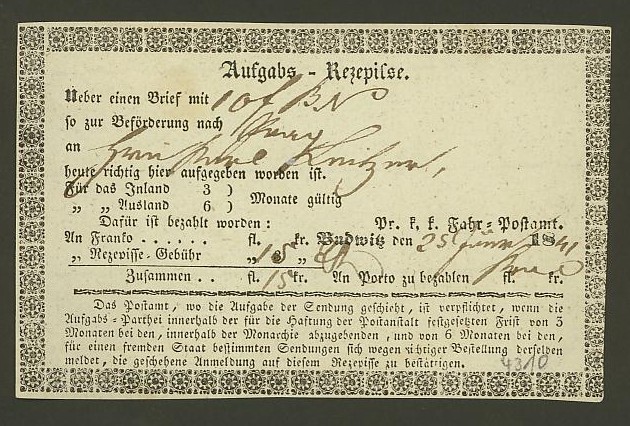 Aufgabs - Rezepisse.
Ueber einen Brief mit 10 f BN
so zur Beförderung nach Prag
an Herrn Karl
heute richtig hier aufgegeben worden ist.
Für das Inland 3 )
„ „ Ausland 6 ) Monate gültig
Dafür ist bezahlt worden: Pr. k. k. Fahr-Postamt.
An Franko . . . . . . fl. kr. Budwitz den 25 1841
„ Rezepisse-Gebühr „ 15 „
Zusammen . . fl. 15 kr. An Porto zu bezahlen fl. kr.
Das Postamt, wo die Aufgabe der Sendung geschieht, ist verpflichtet, wenn die
Aufgabs-Parthei innerhalb der für die Haftung der Postanstalt festgesetzten Frist von 3
Monaten bei den, innerhalb der Monarchie abzugebenden, und von 6 Monaten bei den,
für einen fremden Staat bestimmten Sendungen sich wegen richtiger Bestellung derselben
meldet, die geschehene Anmeldung auf diesem Rezepisse zu bestätigen.
4310